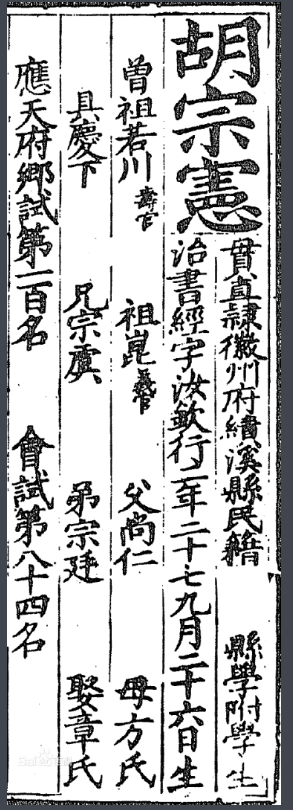 胡宗憲
貫直隸徽州府績溪縣民籍 縣學附學生
治書經字汝欽行二年二十七九月二十六日生
曾祖若川壽官 祖崑義官 父尚仁 母方氏
具慶下 兄宗虞 弟宗廷 娶章氏
應天府鄉試第一百名 會試第八十四名